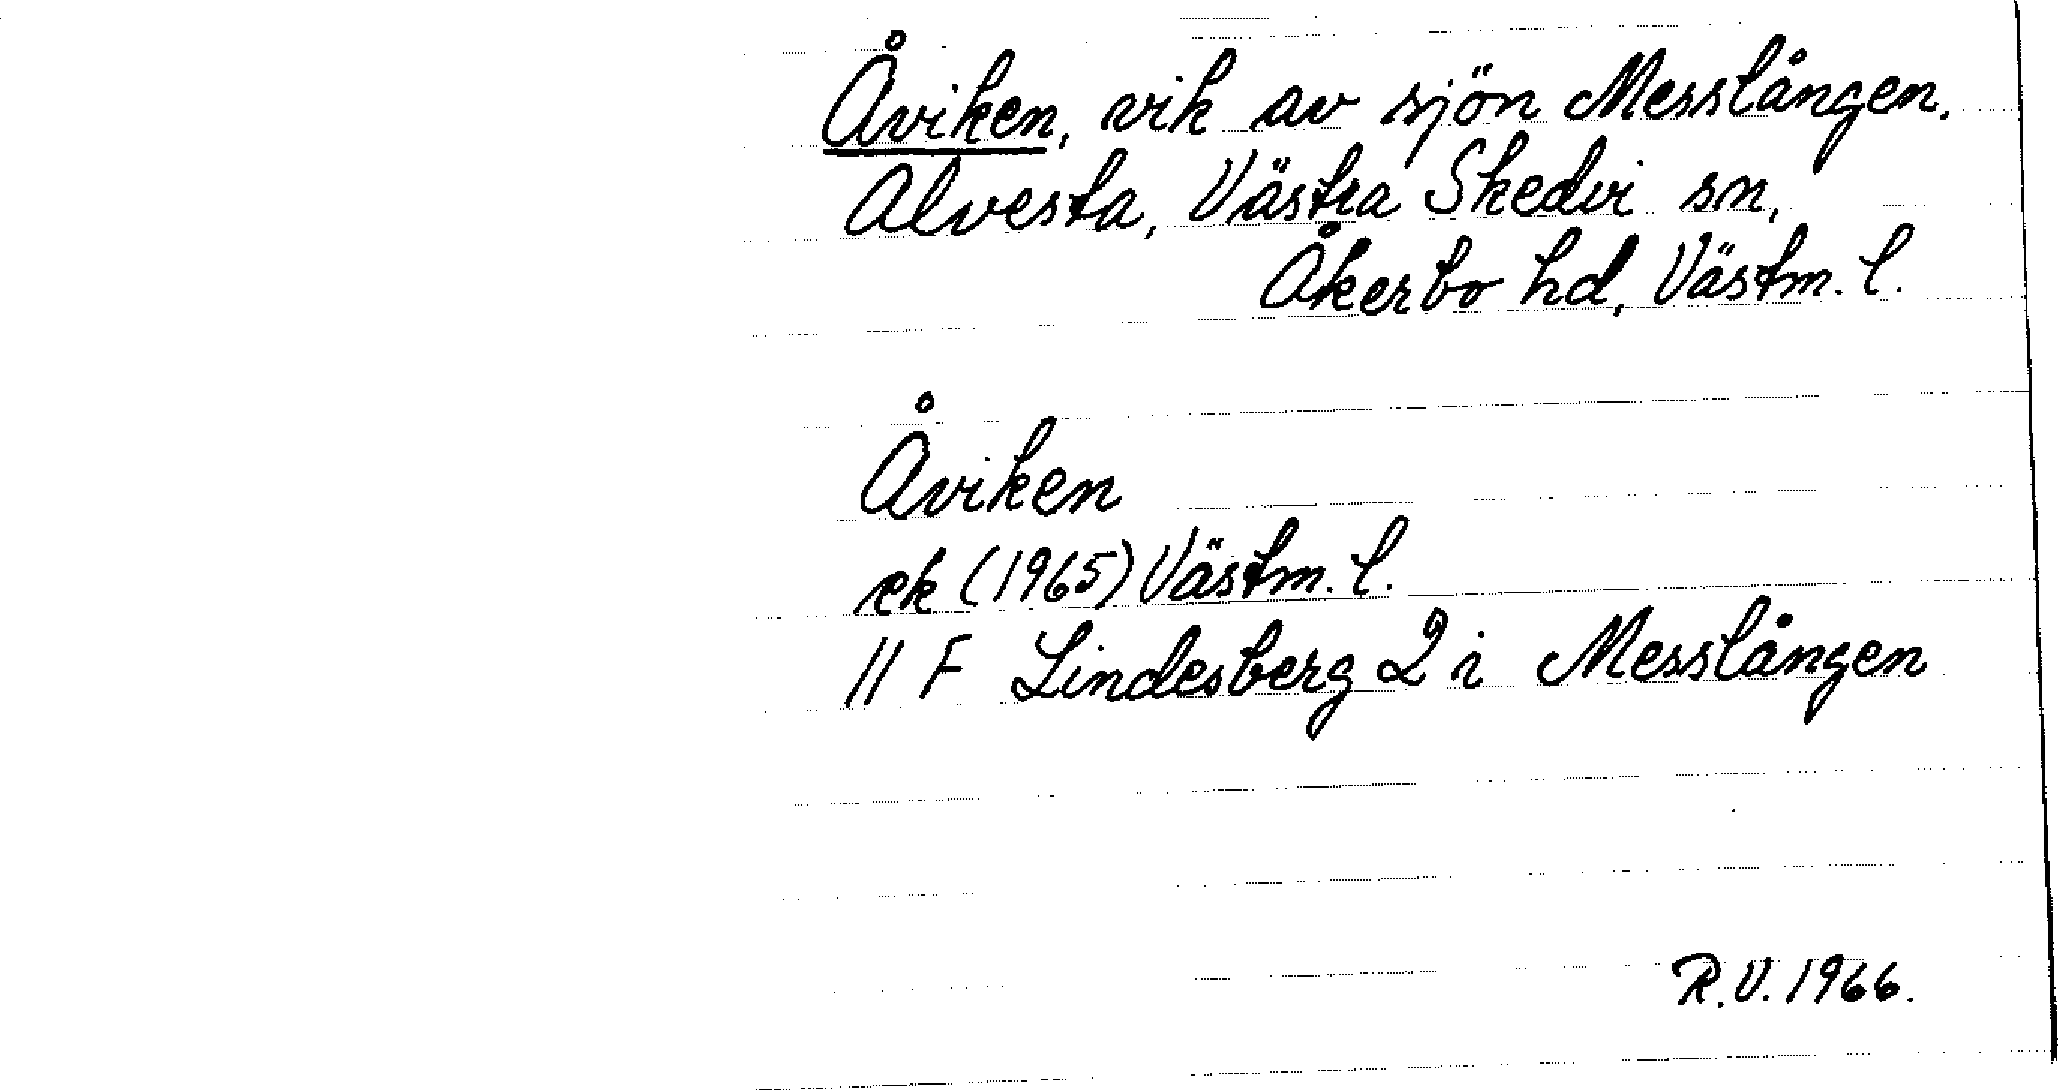 Åviken, vik av sjön Messlången.
Alvesta, Västra Skedvi sn,
Åkerbo hd, Västm. l.
Åviken
ek (1965) Västm. l.
11 F Lindesberg 2 i Messlången
R.V. 1966.